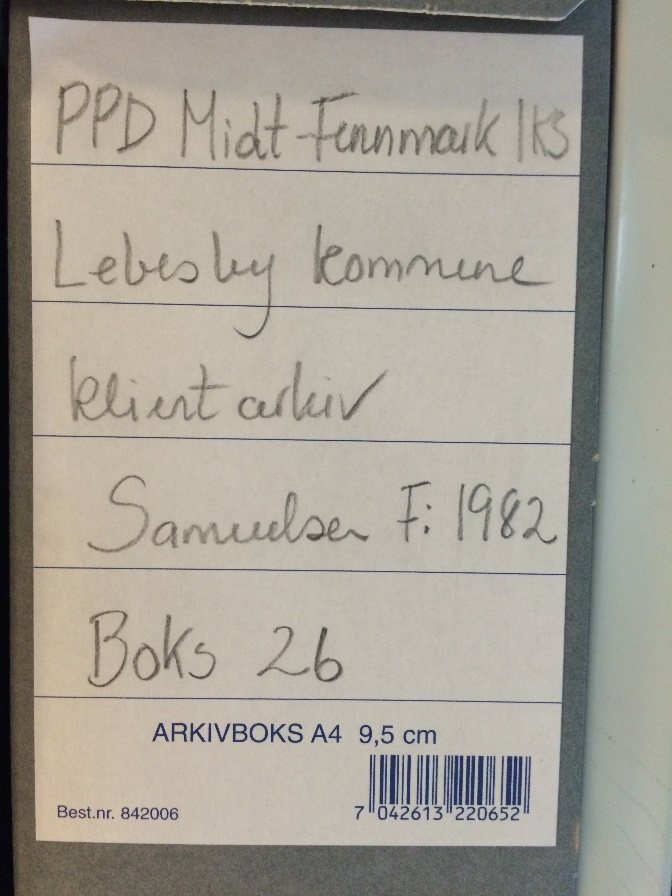 PPD Midt-Finnmark IKS
Lebesby kommune
klientarkiv
Samuelsen F: 1982
Boks 26
ARKIVBOKS A4 9,5 cm
Best.nr. 842006
7 042613 220652